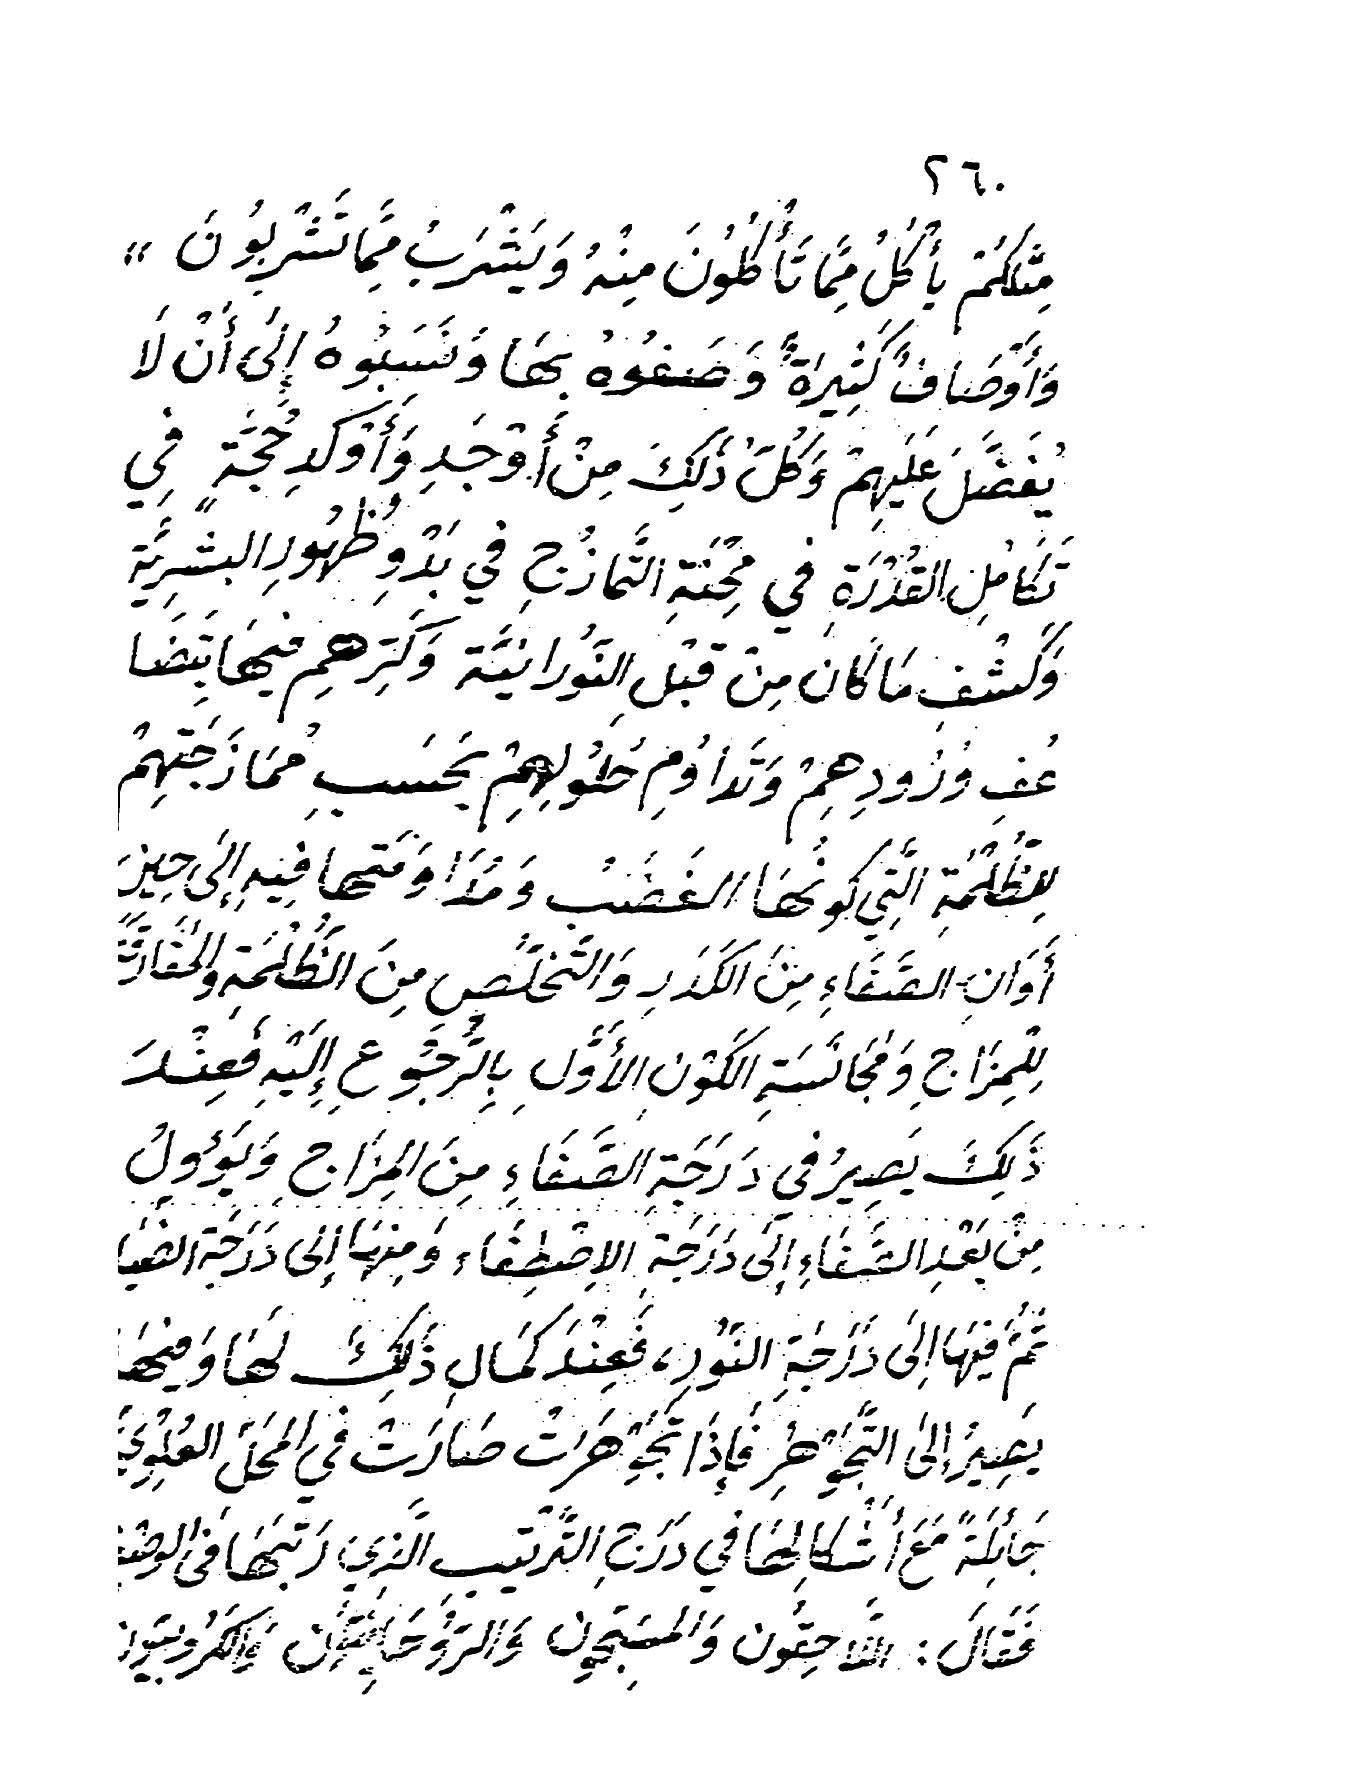 ٢٦٠
مِثْلُكُمْ يَأْكُلُ مِمَّا تَأْكُلُونَ مِنْهُ وَيَشْرَبُ مِمَّا تَشْرَبُونَ »
وَأَوْصَافٌ كَثِيرَةٌ وَصَفُوهُ بِهَا وَنَسَبُوهُ إِلَى أَنْ لَا
يُفَضَّلَ عَلَيْهِمْ وَكُلُّ ذَلِكَ مِنْ أَوْجَدِ وَأَوْكَدِ حُجَّةٍ فِي
تَكَامُلِ القُدْرَةِ فِي مِحْنَةِ التَّمَازُجِ فِي بَدْوِ ظُهُورِ البشَرِيَّةِ
وَكَشْفِ مَا كَانَ مِنْ قَبْلِ النُّورَانِيَّة وَكَرِّهِمِ فِيهَا بِتَضَا
عُفِ وُرُودِهِمْ وَتَدَاوُمِ حُلُولِهِمْ بِحَسَبِ مُمَازَجَتِهِمْ
لِلظُّلْمَةِ الَّتِي كَوَّنَهَا الغَضَبُ وَمُدَاوَمَتِها فِيهِ إِلَى حِينَ
أَوَانِ الصَّفَاءِ مِنَ الكَدَرِ وَالتَّخَلُّصِ مِنَ الظُّلْمَةِ وَالمُفَارَقَةِ
لِلْمِزَاجِ وَمُجَانَسَةِ الكَوْنِ الأَوَّلِ بِالرُّجُوعِ إِلَيْهِ فَعِنْدَ
ذَلِكَ يَصِيرُ فِي دَرَجَةِ الصَّفَاءِ مِنَ المِزَاجِ وَيَؤُولُ
مِنْ بَعْدِ الصَّفَاءِ إِلَى دَرَجَةِ الاِصْطِفَاءِ وَمِنْهَا إِلَى دَرَجَةِ الضِّيَا
ثُمَّ فِيهَا إِلَى دَرَجَةِ النُّورِ، فَعِنْدَ كَمَالِ ذَلِكَ لَهَا وَمِنْهَا
يَصِيرُ إِلَى التَّجَوْهُرِ فَإِذَا تَجَوْهَرَتْ صَارَتْ فِي المَحَلِّ العُلْوِيِّ
جَائِلَةً مَعَ أَشْكَالِهَا فِي دَرَجِ التَّرْتِيبِ الَّذِي رَتَّبَهَا فِي
فَقَالَ : اللَّاحِقُونَ وَالمُسَبِّحُونَ وَالرُّوحَانِيُّونَ وَالكَرُوبِيُّونَ